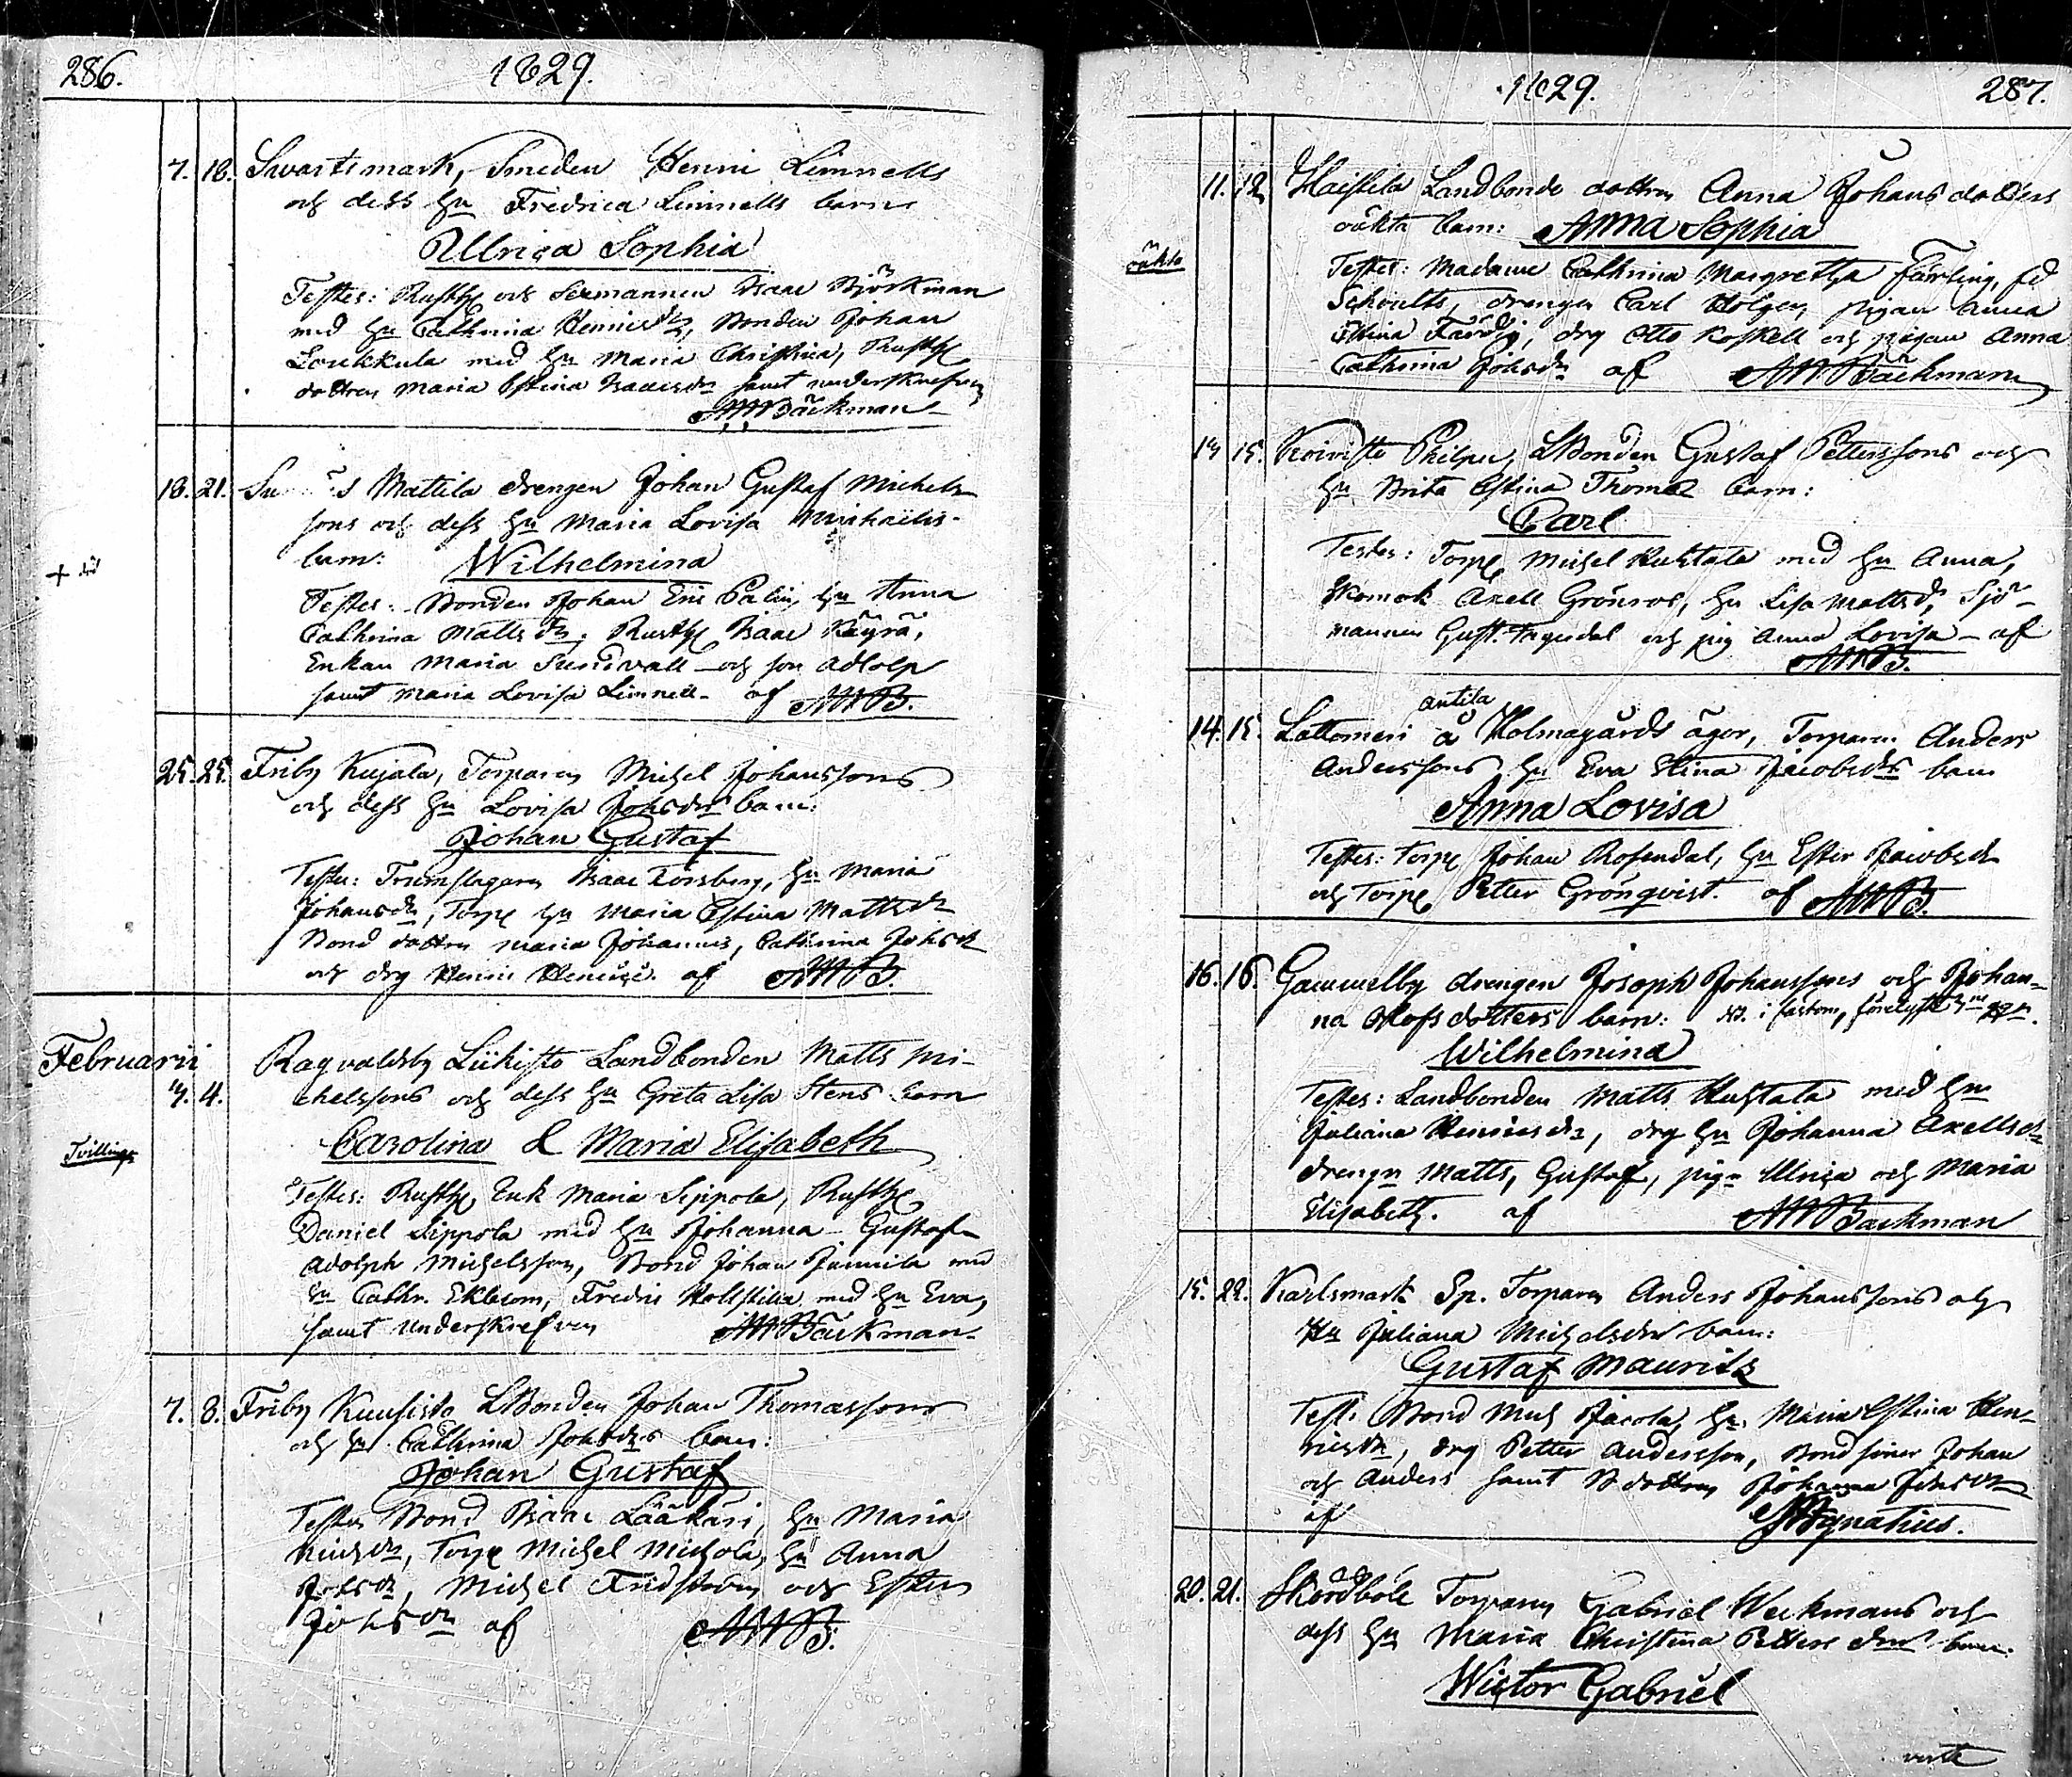 286.
1829.
7. 18. Swartsmark, Smeden Henric Limnells
och dess hu Fredrica Limnells barn
Ullrica Sophia
Testes: Rusth och Nämannen Isaac Björkman
med hu Cathrina Henricsdr, Bonden Johan
Loukkula med hu Maria Christina, Rusth
dottren Maria Stina Isaacsdr samt underskrefven
AWBäckman
18. 21. Mattila drengen Johan Gustaf Michels
sons och dess hu Maria Lovisa Michaelis
barn: Wilhelmina
Testes: Bonden Johan Eric Palin, hu Anna
Cathrina Mattsdr, Rusth Isaac Käyrä,
Enkan Maria Sundvall och son Adolph
samt Maria Lovisa Limnell af AWB.
25. 25. Friby Kujala, Torparen Michel Johanssons
och dess hu Lovisa Johsdrs barn:
Johan Gustaf
Testes: Trumslagaren Isaac Forsberg, hu Maria
Johansdr, Torp hu Maria Stina Mattsdr
Bond dottren Maria Johannis, Cathrina Johsdr
och drg Henric af AWB.
Februarii
4. 4. Ragvaldsby Liikisto Landbonden Matts Mi-
chelssons och dess hu Greta Lisa Stens barn
Tvillingar
Carolina & Maria Elisabeth
Testes: Rusth Enk Maria Sippola, Rusth
Daniel Sippola med hu Johanna Gustaf
Adolph Michelsson, Bond Johan Junnila med
hu Cathr. Ekbom, Fredric med hu Eva,
samt underskrefven AWBäckman.
7. 8. Friby Kuusisto LBonden Johan Thomassons
och hu Cathrina Johsdrs barn:
Johan Gustaf
Testes Bond Isaac Lääkäri, hu Maria
Michsdr, Torp Michel Michola, hu Anna
Johsdr, Michel Fridström och Ester
Johsdr af AWB.
1829.
287.
11. 12. Haistila Landbonde dottren Anna Johansdotters
oäkta barn: Anna Sophia
oäkta
Testes: Madame Cathrina Margretha Färling, fd
Schoultz, drengen Carl Holgen, pigan Anna
Stina Färdig, drg Otto Koskell och pigan Anna
Cathrina Johsdr af AWBäckman
14 15. Koivisto Philpu, LBonden Gustaf Petterssons och
hu Brita Stina Thomæ barn:
Carl
Testes: Torp Michel Huhtala med hu Anna,
Skomak Axell Grönroos, hu Lisa Mattsd, Sjö-
mannen Gust. Fagerdal och pig Anna Lovisa - af
AWB.
14. 15. Lattomeri å Antila Holmagårds ägor, Torparen Anders
Anderssons hu Eva Stina Jacobsdrs barn
Anna Lovisa
Testes: Torp Johan Rosendal, hu Ester Jacobsdr
och Torp Petter Grönqvist. af AWB.
16. 16. Gammelby drengen Joseph Johanssons och Johan-
na Olofsdotters barn:
Wilhelmina
Testes: Landbonden Matts Huhtala med hu
Juliana Henricsdr, drg hu Johanna Axellsdr
drengn Matts, Gustaf, pign Ulrica och Maria
Elisabeth. af AWBäckman
15. 22. Karlsmark Sp. Torparen Anders Johanssons och
Hu Juliana Michelsdrs barn:
Gustaf Maurits
Test: Bond Mich Jacola, hu Maria Stina Hen-
ricsdr, drg Petter Andersson, Bondsöner Johan
och Anders samt B dottren Johanna Johsdr
af Ignatius.
20. 21. Skördböle Torparen Gabriel Weckmans och
dess hu Maria Christina Petters drs barn:
Wictor Gabriel
verte